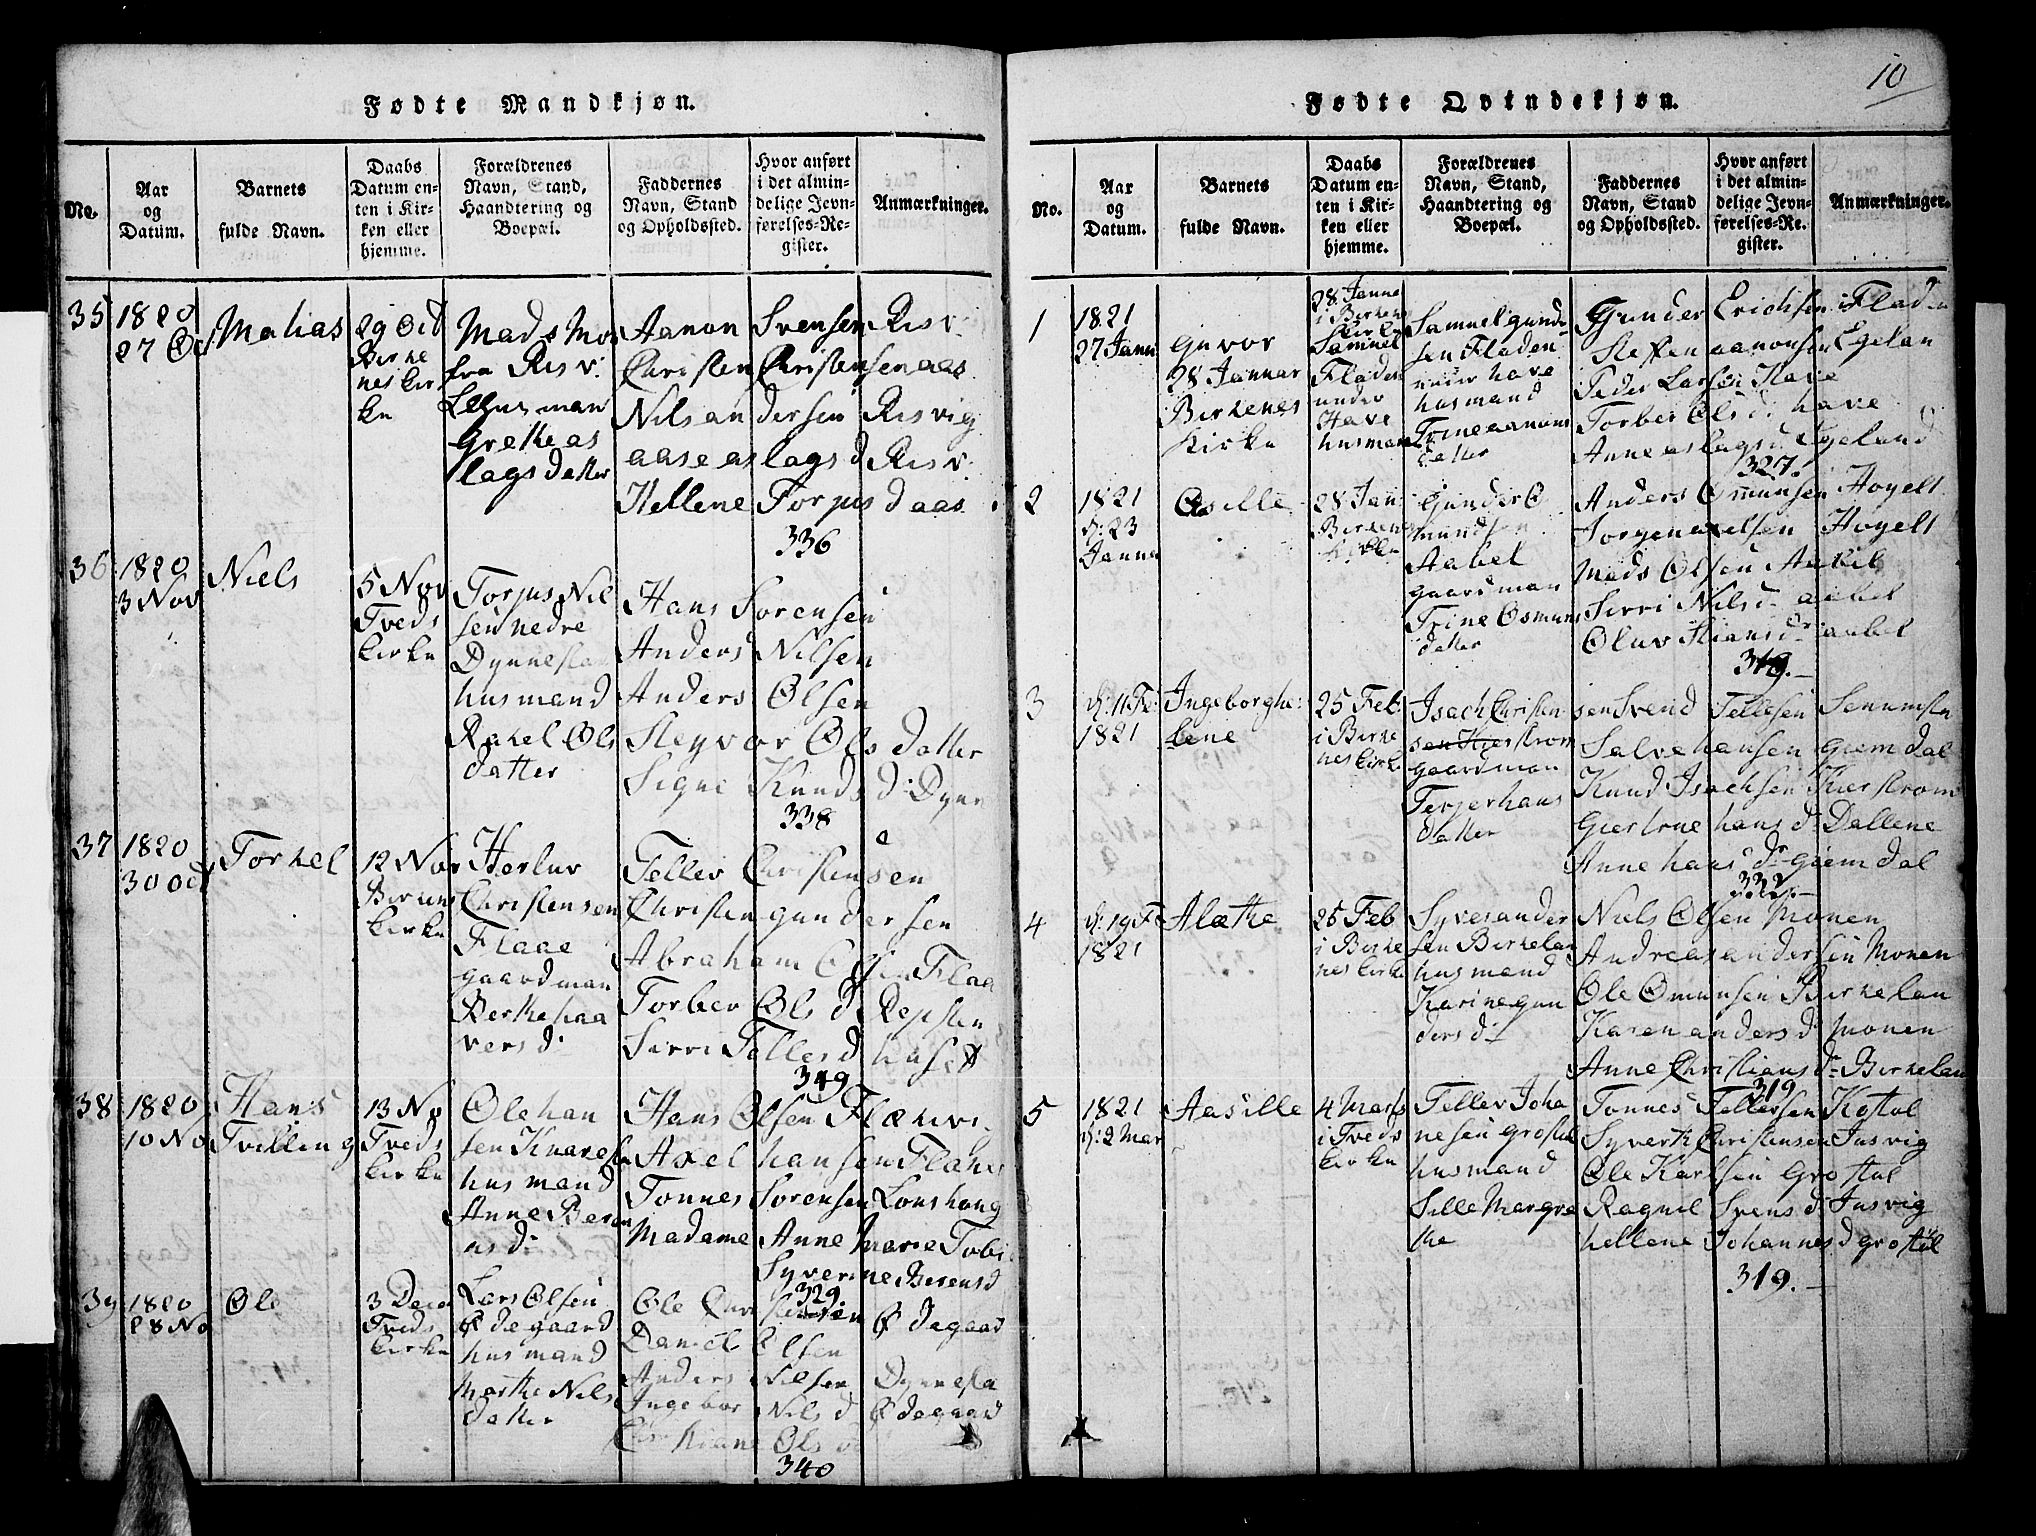 10
Fødte Mandkjøn.
No.
Aar
og
Datum.
Barnets
fulde Navn.
Daabs
Datum en-
ten i Kir-
ken eller
hjemme.
Forældrenes
Navn, Stand,
Haandtering og
Boepæl.
Faddernes
Navn, Stand
og Opholdssted.
Hvor anført
i det almin-
delige Jevn-
førelses-Re-
gister.
Anmærkninger.
35
1820
27 Oct
Matias
29 Oct
Birke
nes kir
ke
Mads Mo
fra Risv.
Grethe as
lags datter
Aanon Svensen Risv.
Christen Christensen aas
Nils andersen Risvig
aase as lags d Risv.
Hellene Torjus d aas
336
36
1820
3 Nov
Niels
5 Nov
Tveds
kirke
Torjus Nil
sen nedre
Dynnesla
husmand
Rakel Ols
datter
Hans Sorensen
Anders Nilsen
Anders Olsen
Steyvor Ols datter
Signe Knuds d: Dynn
338
37
1820
30 Oct
Torkel
12 Nov
Birkens
kirke
Herluv
Christensen
Flaae
gaardman
Berthe haa
vers d:
Tellev Christensen
Christen gundersen
Abraham Olsen Flaa
Torber Ols d Repsten
Sirri Telles d huset
349
38
1820
10 No
Hans
Tvilling
13 No
Tveds
kirke
Ole han
sen Knaresn
husmand
Anne Beren
ns d:
Hans Olsen Flækvi
Axel hansen Flake
Tonnes Sorensen Lonshong
Madame Anne Marie Tobi
Syverine Berens d
329
39
1820
28 No
Ole
3 Dece
Tveds
kirke
Lars Olsen
Ødegaard
husmand
Marthe Nils
datter
Ole Christensen Ødegaard
Daniel Olsen
Anders Nilsen Dynnesla
Ingebor Nils d Ødegaard
340
Fødte Qvindekjøn.
No.
Aar
og
Datum.
Barnets
fulde Navn.
Daabs
Datum en-
ten i Kir-
ken eller
hjemme.
Forældrenes
Navn, Stand,
Haandtering og
Boepæl.
Faddernes
Navn, Stand
og Opholdssted.
Hvor anført
i det almin-
delige Jevn-
førelses-Re-
gister.
Anmærkninger.
1
1821
27 Jann
Guvor
28 Jannar
Birkenes
kirke
28 Janne
i Birkens
kirke
Samuel
Fladen
under
Have
husmand
Samuel gunder
sen Fladen
under have
husmand
Trine aanons
datter
Gunder Erichsen i Fladen
Steffen aanonsen Egelan
Peder Larsen Have
Torber Ols d: have
Anne aslags d Egeland
327.
2
1821
d: 23
Janna
Osille
28 Jan
Birkenes
kirke
Gunder O
mundsen
Aabel
gaardman
Trine Osmuns
datter
Anders Omunsen Høyelt
Jorgen axelsen Høyelt
Mads Olsen
Sirri Nils d: aabel
Oluv Stians dr aabel
319.
3
d: 11 Fe:
1821
Ingeborghe:
lene
25 Feb:
i Birke
nes kirke
Isach Christen
sen Kierstrom
gaardman
Terjer hans
datter
Svend Tellesen Senumsten
Salve hansen giemdal
Knud Isachsen Kierstrom
Giertrue hans d: Dallene
Anne hans dr giemdal
332.
4
d: 19 F
1821
Alethe
25 Feb
i Birke
nes kirke
Syver ander
sen Birkelan
husmand
Karine gun
ders d:
Niels Olsen Monen
Andreas andersen Monen
Ole Omunsen Birkelan
Karen anders d Monen
Anne Christians dr Birkelan
319
5
1821
d: 2 Mar
Aasille
4 Marts
i Tveds
kirke
Tellev Joha
nesen grostøl
husmand
Sille Margre
the
Tonnes Tellefsen Kostøl
Syvert Christensen Jusvig
Ole Karlsen grostøl
Ragnil Svens d Jusvig
hellene Johannes d grostøl
319.